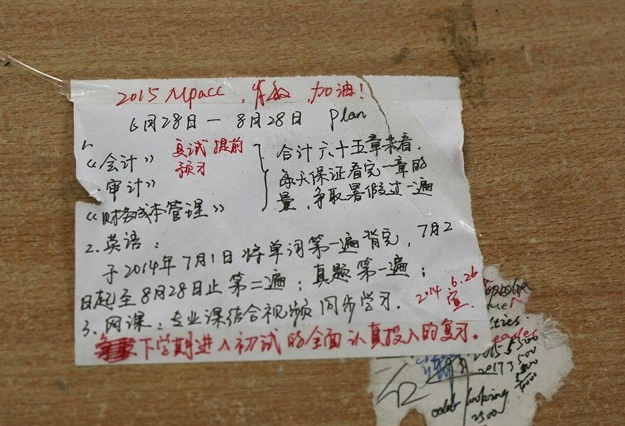 2015 MPAcc, 加油!
6月28日—8月28日 Plan
1.
《会计》 复试提前
预习
审计》
《财务成本管理》
合计六十五章未看.
每天保证看完一章的
量, 争取暑假过一遍
2.英语:
于2014年7月1日将单词第一遍背完, 7月2
日起至8月28日止第二遍; 真题第一遍;
3.网课: 专业课结合视频同步学习.
2014.6.26
下学期进入初试的全面认真投入的复习.
2015 5500
2017 3500
odd
2500